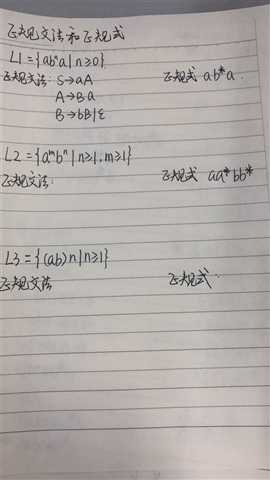 正规文法和正规式
L1={abⁿa|n≥0}
正规文法: S→aA 正规式 ab*a.
A→Ba
B→bB|ε
L2={aᵐbⁿ|n≥1,m≥1}
正规文法: 正规式 aa*bb*
L3={(ab)n|n≥1}
正规文法 正规式.